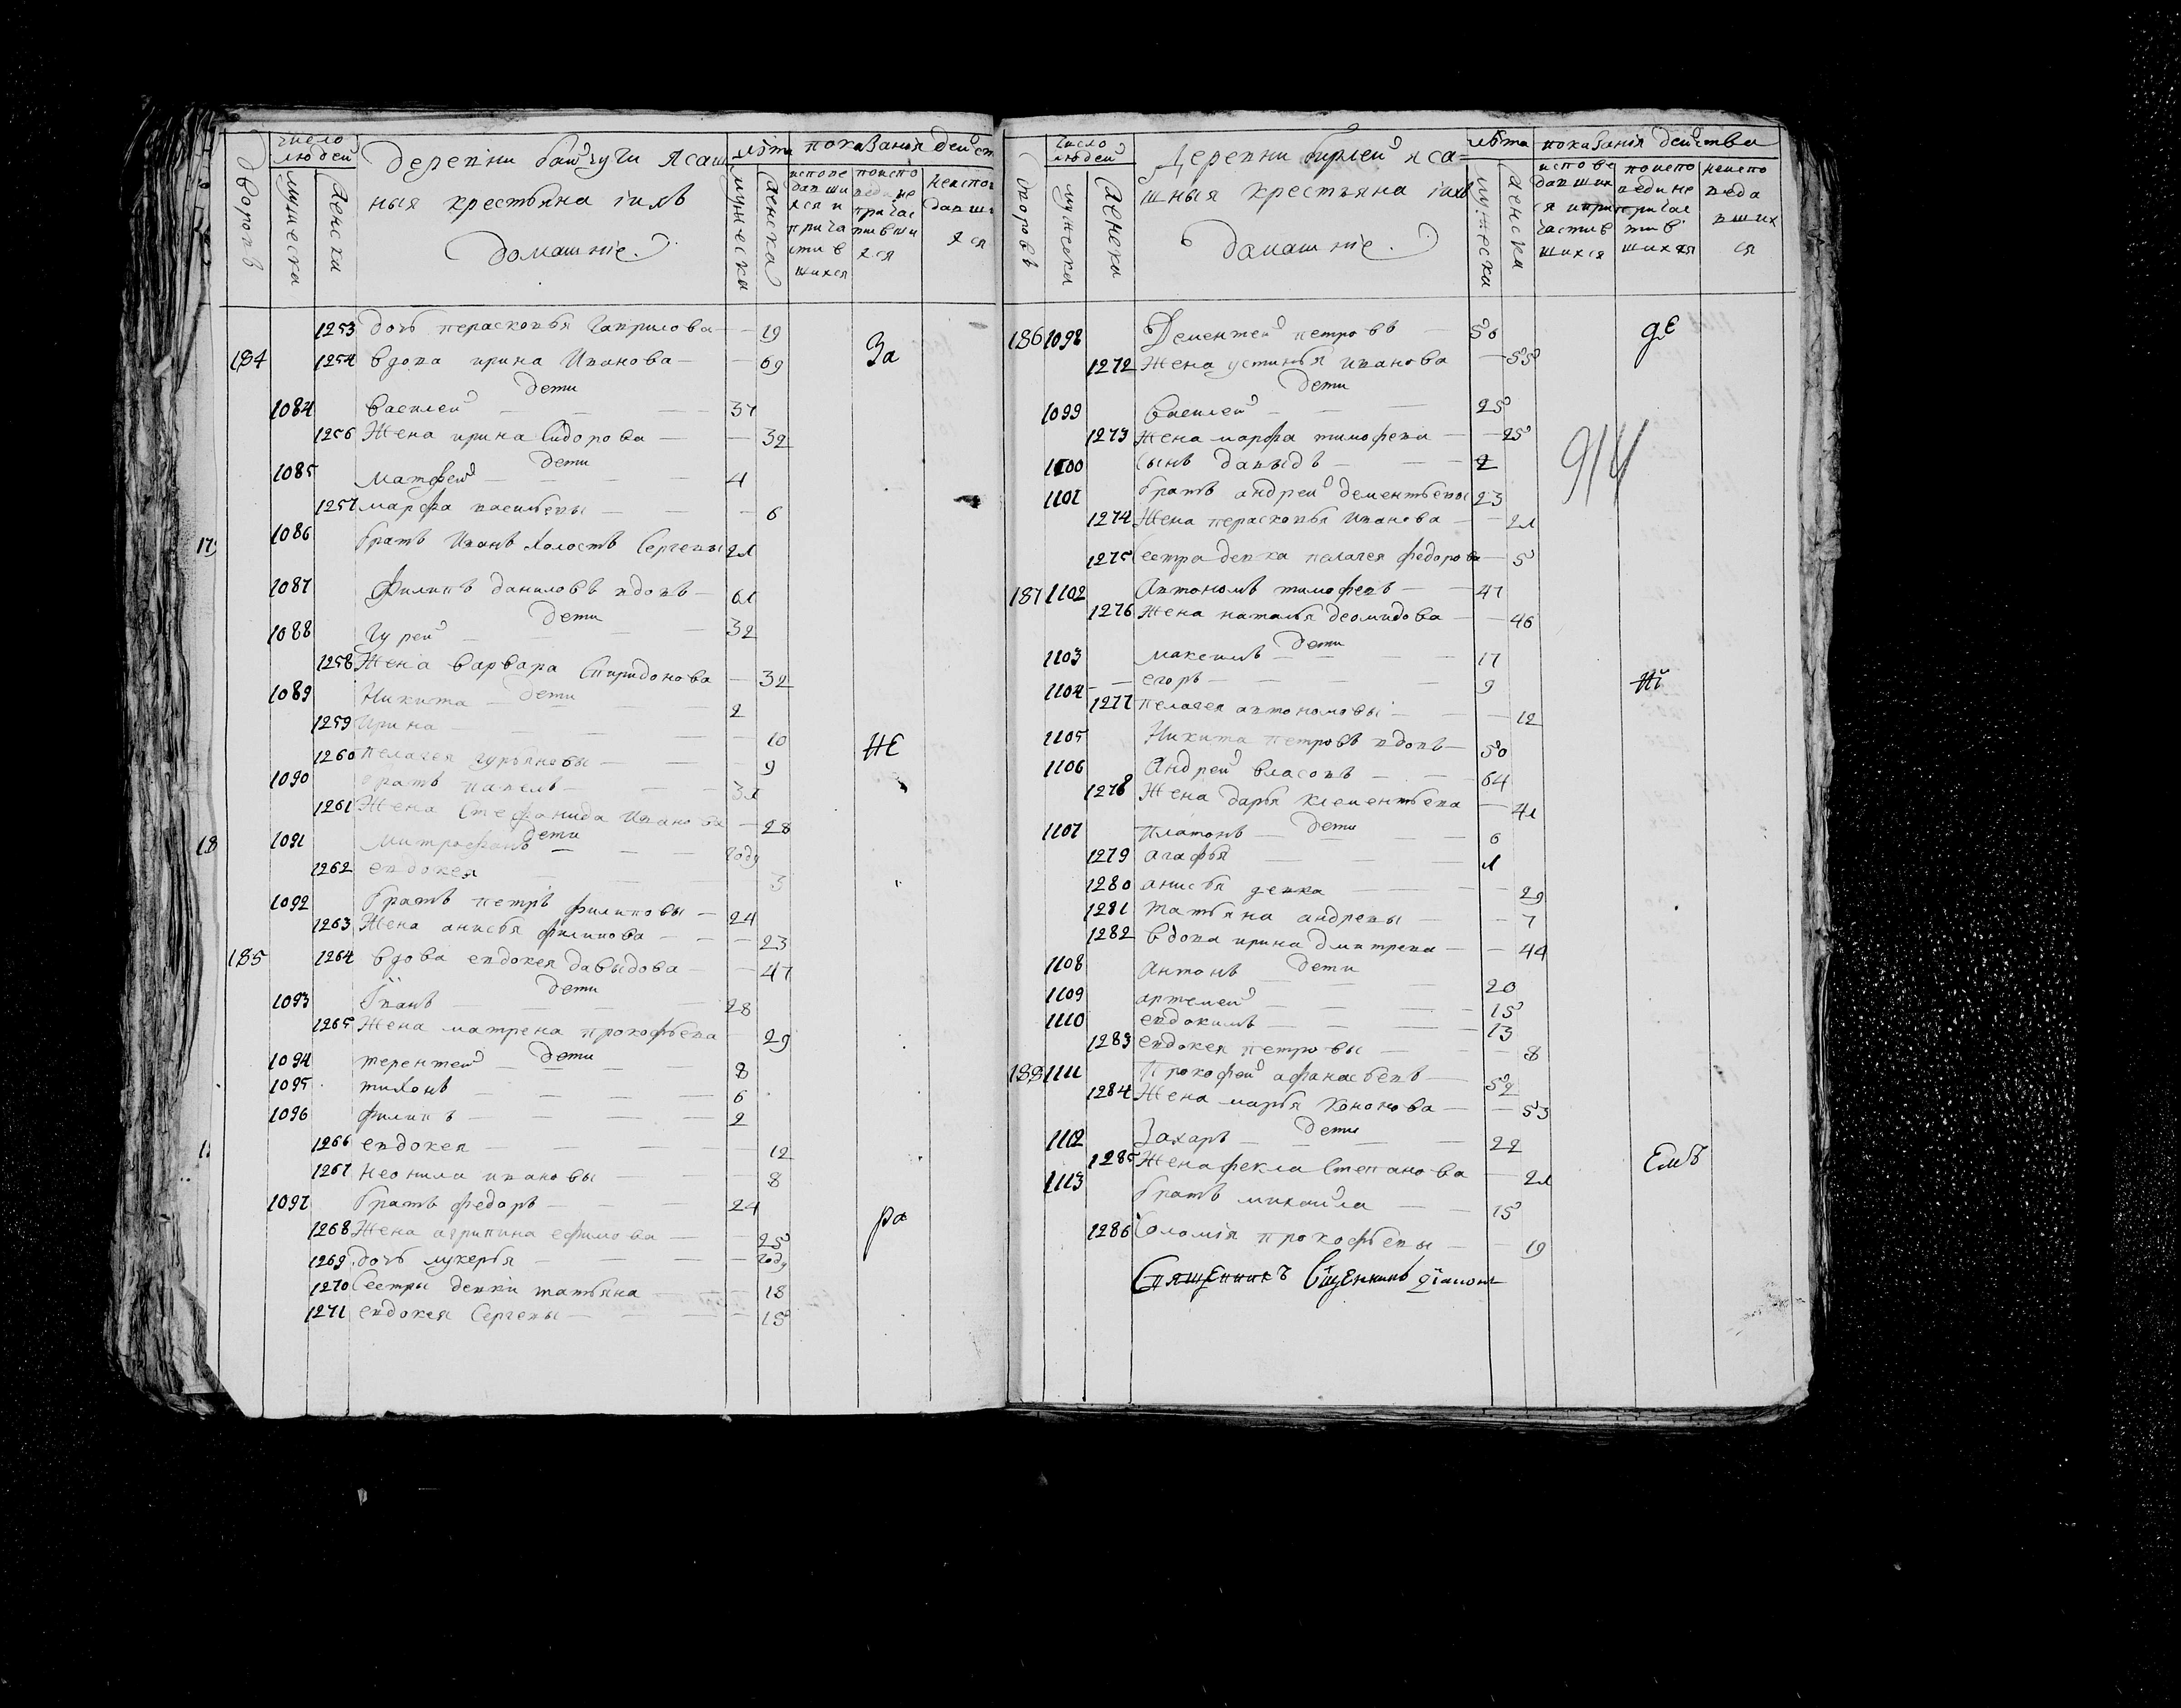 дворовъ
число людей
мужеска
женска
Деревни баичуги ясаш
ныя крестьяна iихъ
домашнiе.
лѣта
мужеска
женска
показанiя дейст
исповедавшихся и причастившихся
поисповеди не причастившихся
неисповедавшихся
1253 дочь перасковья гаврилова — 19
184 1254 вдова ирина Иванова — 69 За
дети
1084 василей — 37
1256 Жена ирина Сидорова — 32
дети
1085 матфей — 4
1257 марфа васильевы — 6
1086 братъ Иванъ холостъ Сергеевы 21
1087 филипъ даниловъ вдовъ — 61
дети
1088 гурей — 32
1258 Жена варвара Спиридонова — 32
дети
1089 Никита — 2
1259 Ирина — 10
1260 пелагея гурьяновы — 9 НЕ
1090 братъ павелъ — 31
1261 Жена Стефанида Иванова — 28
дети
1091 митрофанъ — году
1262 евдокея — 3
1092 братъ петръ филиповы — 24
1263 Жена анисья филипова — 23
185 1264 вдова евдокея давыдова — 47
дети
1093 Iванъ — 28
1265 Жена матрена прокофьева — 29
дети
1094 терентей — 8
1095 тихонъ — 6
1096 филипъ — 2
1266 евдокея — 12
1267 неонила ивановы — 8
1097 братъ федоръ — 24
1268 Жена агрипина ефимова — 25 ра
1269 дочь лукерья — году
1270 Сестры девки татьяна — 18
1271 евдокея Сергеевы — 15
дворовъ
число людей
мужеска
женска
Деревни бирлей яса=
шныя крестьяна iихъ
домашнiе.
лѣта
мужеска
женска
показанiя действа
исповедавшихся и причастившихся
поисповеди не причастившихся
неисповедавшихся
186 1098 Дементей петровъ — 56 дЕ
1272 Жена устинья иванова — 55
дети
1099 василей — 25
1273 Жена марфа тимофеева — 25
914
1100 сынъ давыдъ — 2
1101 братъ андрей дементьевы 23
1274 Жена перасковья Иванова — 21
1275 Сестра девка пелагея федорова — 5
187 1102 Автономъ тимофеевъ — 47
1276 Жена наталья деомидова — 46
дети
1103 максимъ — 17
1104 егоръ — 9 Нї
1277 пелагея автономовы — 12
1105 Никита петровъ вдовъ — 50
1106 Андрей власовъ — 64
1278 Жена дарья клементьева — 41
дети
1107 платонъ — 6
1279 агафья — 1
1280 анисья девка — 29
1281 татьяна андревы — 7
1282 вдова ирина дмитрева — 44
дети
1108 антонъ — 20
1109 артемей — 15
1110 евдокимъ — 13
1283 евдокея петровы — 8
188 1111 Прокофей афанасьевъ — 52
1284 Жена марья кононова — 53
дети
1112 Захаръ — 22
1285 Жена фекла Степанова — 21 ЕмЪ
1113 братъ михаила — 15
1286 Соломiя прокофьевы — 19
СвящЕнникЪ